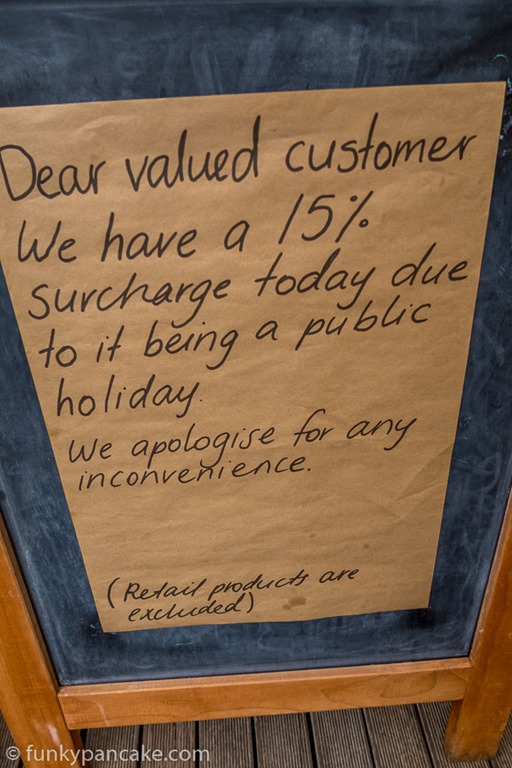 Dear valued customer
We have a 15%
surcharge today due
to it being a public
holiday.
We apologise for any
inconvenience.
(Retail products are
excluded)
© funkypancake.com